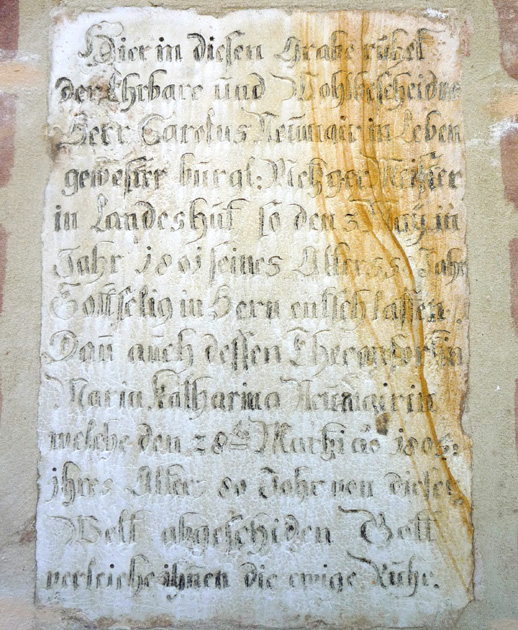 Hier in diesen Grabe ruhet
der Ehrbare und Wohlbescheidne
Herr Carolus Neümair in Leben
gewester bürgl: Metzger Meister
in Landeshūt so den 3. May in
Jahr 1801 seines Alters Jahr
Gottselig in Hern entschlaffen.
Daū aūch dessen Ehegan
Maria Katharina Neümairin
welche den 28ten 180
ihres Alters 80 Johr von dieser
Welt abgeschiden Gott
verleiche ihnen die ewige Rūhe.